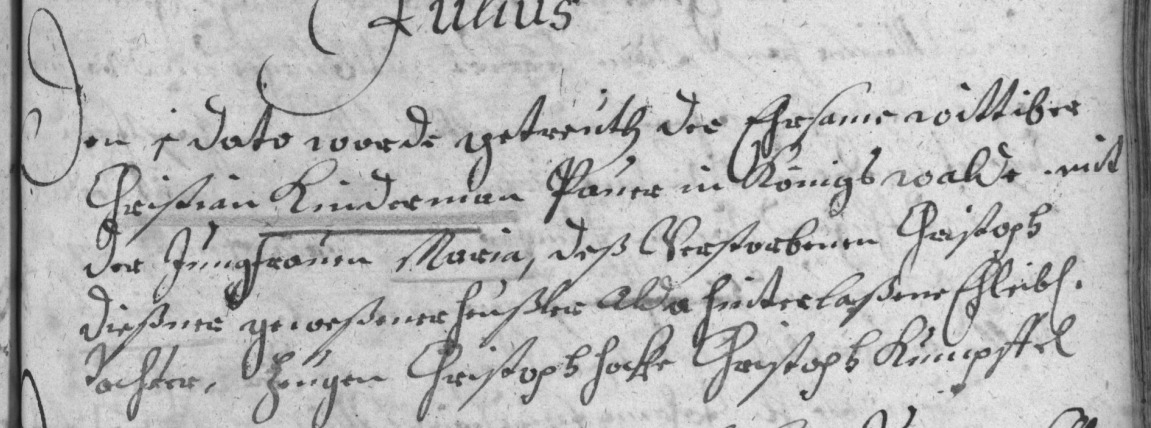 Julius
Den 5 dato worde getreuth der Ehrsame wittiber
Christian Kinderman Pauer in Königswalde mit
der Jungfrauen Maria, deß Verstorbenen Christoph
Dießner geweßener heußler Alda hinterlaßene Ehleibl.
tochter. Zeugen Christoph hocke Christoph Kumpffel